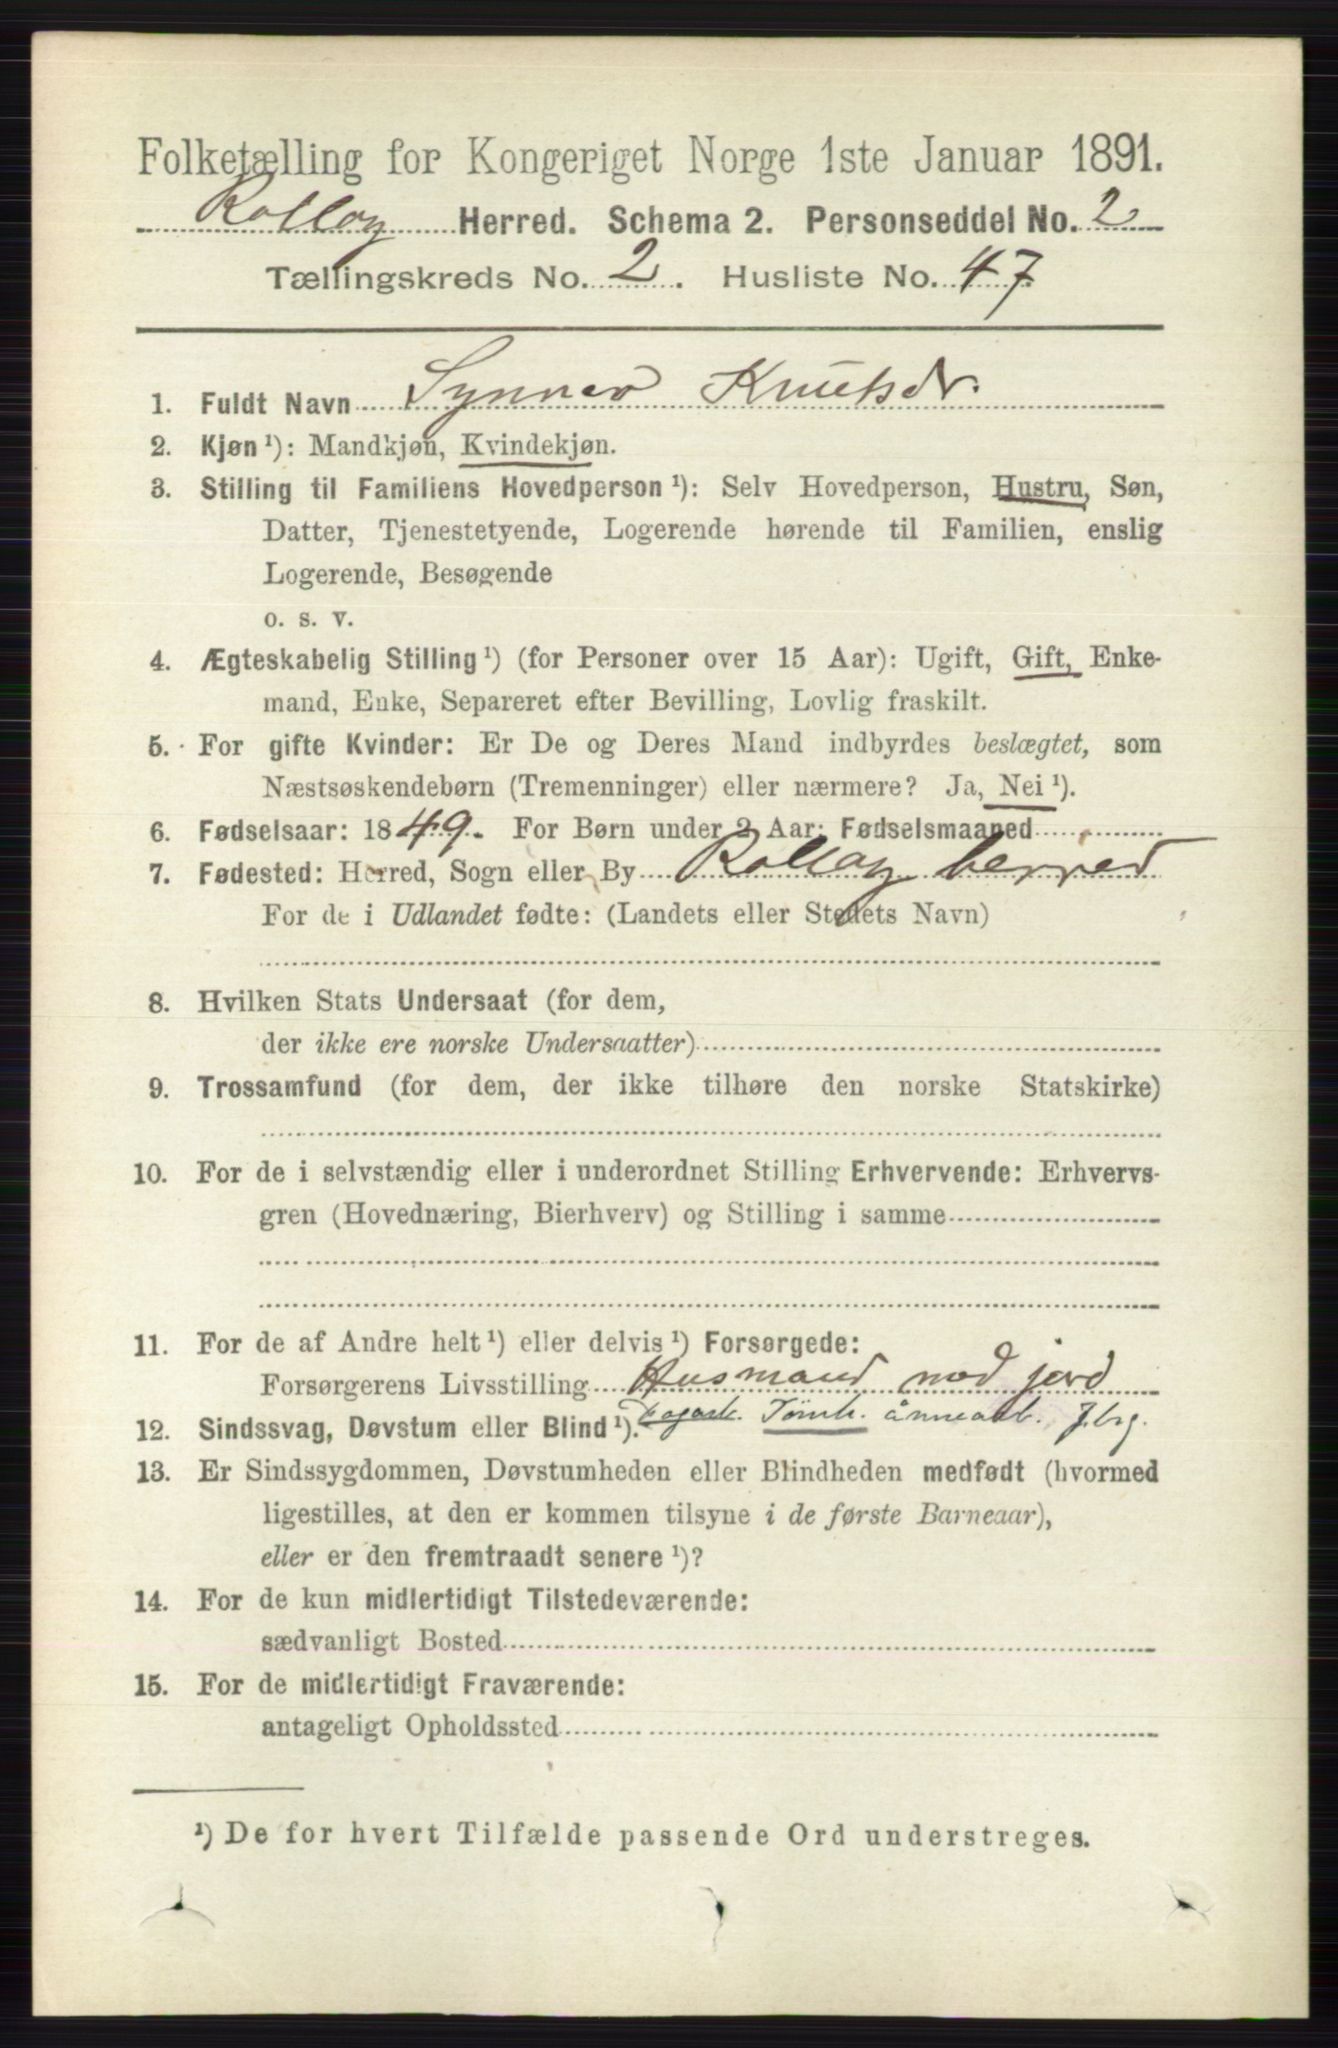 Folketælling for Kongeriget Norge 1ste Januar 1891.
Rollag Herred. Schema 2. Personseddel No. 2
Tællingskreds No. 2. Husliste No. 47
1. Fuldt Navn Synnev Knutsdr.
2. Kjøn¹): Mandkjøn, Kvindekjøn.
3. Stilling til Familiens Hovedperson¹): Selv Hovedperson, Hustru, Søn,
Datter, Tjenestetyende, Logerende hørende til Familien, enslig
Logerende, Besøgende
o. s. v.
4. Ægteskabelig Stilling¹) (for Personer over 15 Aar): Ugift, Gift, Enke-
mand, Enke, Separeret efter Bevilling, Lovlig fraskilt.
5. For gifte Kvinder: Er De og Deres Mand indbyrdes beslægtet, som
Næstsøskendebørn (Tremenninger) eller nærmere? Ja, Nei¹).
6. Fødselsaar: 1849. For Børn under 2 Aar: Fødselsmaaned
7. Fødested: Herred, Sogn eller By Rollag herred
For de i Udlandet fødte: (Landets eller Stedets Navn)
8. Hvilken Stats Undersaat (for dem,
der ikke ere norske Undersaatter)
9. Trossamfund (for dem, der ikke tilhøre den norske Statskirke)
10. For de i selvstændig eller i underordnet Stilling Erhvervende: Erhvervs-
gren (Hovednæring, Bierhverv) og Stilling i samme
11. For de af Andre helt¹) eller delvis¹) Forsørgede:
Forsørgerens Livsstilling Husmand med jord
12. Sindssvag, Døvstum eller Blind¹). Tømh. J.brg.
13. Er Sindssygdommen, Døvstumheden eller Blindheden medfødt (hvormed
ligestilles, at den er kommen tilsyne i de første Barneaar),
eller er den fremtraadt senere¹)?
14. For de kun midlertidigt Tilstedeværende:
sædvanligt Bosted
15. For de midlertidigt Fraværende:
antageligt Opholdssted
¹) De for hvert Tilfælde passende Ord understreges.